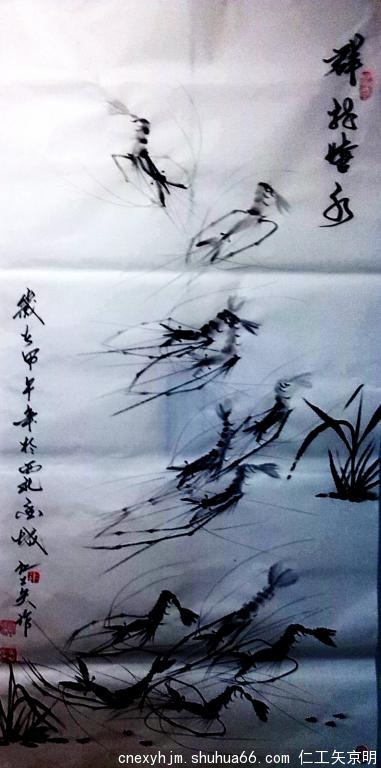 群嬉水
歲在甲午年於西北金城
仁工矢作
cnexyhjm.shuhua66.com 仁工矢京明